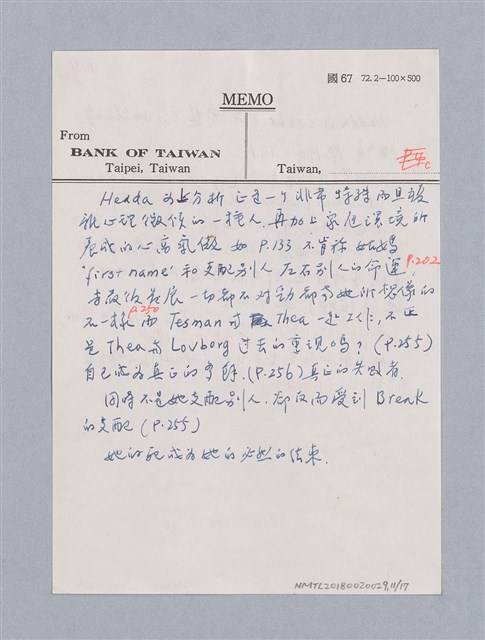 國67 72.2-100×500
MEMO
From
BANK OF TAIWAN
Taipei, Taiwan
Taiwan,
P.4c
Hedda 分析 正是一个非常特殊而且複
雜心理徵候的一種人. 再加上家庭環境所
養成的心高氣傲 如 P.133 不肯称姑媽
'first name' 和支配別人 左右別人的命運, P.202
一切都不对勁 都与她所想像的
不一樣 P.250 而 Tesman 与 Thea 一起工作, 不正
是 Thea 与 Lovborg 过去的重現嗎? (P.255)
自己成為真正的多餘. (P.256) 真正的失敗者.
同時不是她支配別人. 却反而受到 Breck
的支配 (P.255)
她的死成為她的必然的結束.
NMTL20180020029,11/17